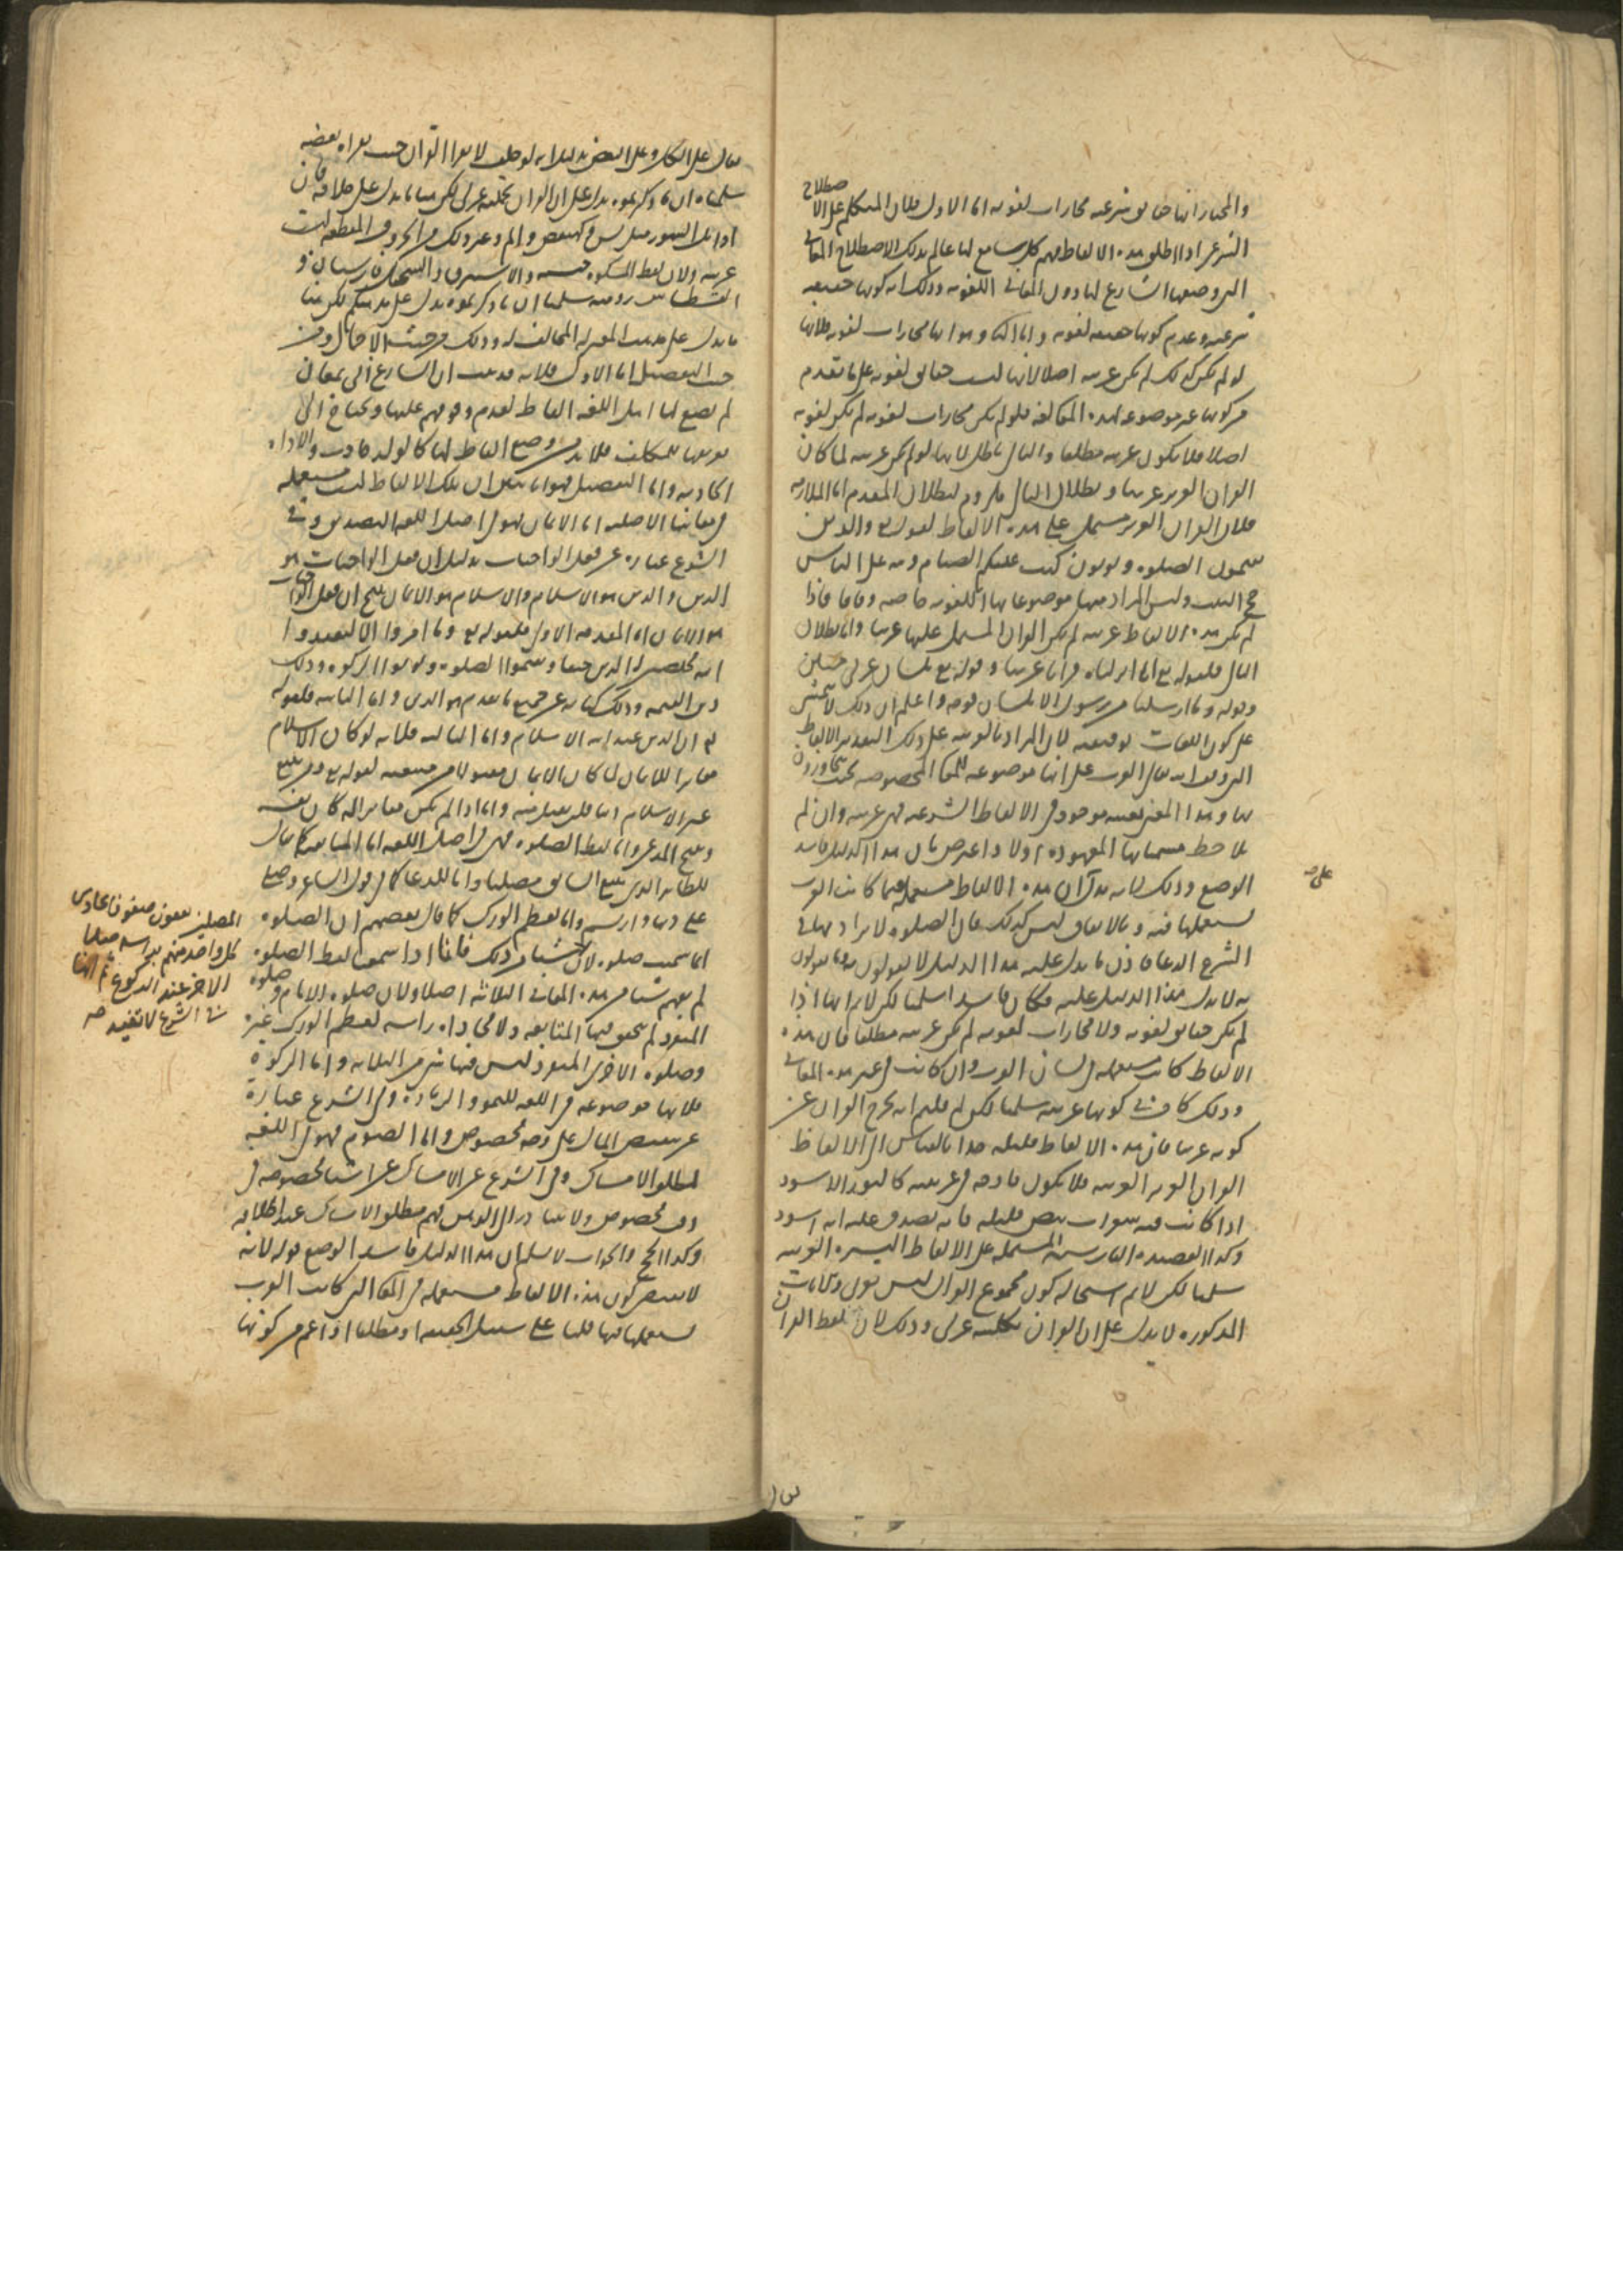 والمختار انها حقايق شرعيه مجازات لغويه اما الاول فلان المتكلم على الاصطلاح
الشرعى اذا اطلق هذه الالفاظ فهم كل سامع لها عالم بذلك الاصطلاح المعانى
التى وضعها الشارع لها دون المعانى اللغويه وذلك ايه كونها حقيقه
شرعيه وعدم كونها حقيقه لغويه واما الثانى وهو انها مجازات لغويه فلانها
لو لم يكن كذلك لم يكن عربيه اصلا لانها ليست حقايق لغويه على ما تقدم
من كونها غير موضوعه لهذه المعانى لغه فلو لم يكن مجازات لغويه لم يكن لغويه
اصلا فلا يكون عربيه مطلقا والتالى باطل لانها لو لم يكن عربيه لما كان
القران العزيز عربيا وبطلان التالى ملزوم لبطلان المقدم اما الملازمه
فلان القران العزيز مشتمل على هذه الالفاظ لقوله تع والذين
يقيمون الصلوه ويوتون كتب عليكم الصيام ولله على الناس
حج البيت وليس المراد منها موضوعاتها اللغويه خاصه وفاقا فاذا
لم يكن هذه الالفاظ عربيه لم يكن القران المشتمل عليها عربيا واما بطلان
التالى فلقوله تع انا انزلناه قرانا عربيا وقوله تع بلسان عربى مبين
وقوله وما ارسلنا من رسول الا بلسان قومه واعلم ان ذلك لا يتمشى
على كون اللغات توقيفيه لان المراد بالعربيه على ذلك التقدير الالفاظ
التى وقف الله تعالى العرب على انها موضوعه للمعانى المخصوصه بحيث يتحاورون
بها وهذا المعنى بعينه موجود فى الالفاظ الشرعيه فهى عربيه وان لم
يلاحظ مسمياتها المعهوده اولا واعترض بان هذا الدليل فاسد
الوضع وذلك لانه يدل على ان هذه الالفاظ مستعمله فيما كانت العرب
على صح
يستعملها فيه وبالاتفاق ليس كذلك فان الصلوه لا يراد بها فى
الشرع الدعا فاذن ما يدل عليه هذا الدليل لا يقولون به وما يقولون
به لا يدل هذا الدليل عليه فكان فاسدا سلمنا لكن لا نم انها اذا
لم يكن حقايق لغويه ولا مجازات لغويه لم يكن عربيه مطلقا فان هذه
الالفاظ كانت مستعمله فى لسان العرب وان كانت فى غير هذه المعانى
وذلك كاف فى كونها عربيه سلمنا لكن لم قلتم انه يخرج القران عن
كونه عربيا فان هذه الالفاظ قليله جدا بالقياس الى الالفاظ
القران العزيز العربيه فلا يكون قادحه فى عربيته كالثور الاسود
اذا كانت فيه شعرات بيض قليله فانه يصدق عليه انه اسود
وكذا القصيده الفارسيه المشتمله على الالفاظ اليسيره العربيه
سلمنا لكن لا نم استحاله كون مجموع القران ليس بعربى والايات
المذكوره لا يدل على ان القران بكليته عربى وذلك لان لفظ القران
يقال على الكل وعلى البعض بدليل انه لو حلف لا يقرا القران حنث بقراه بعضه
سلمنا ان ما ذكرتموه يدل على ان القران بكليته عربى لكن هنا ما يدل على خلافه فان
اوايل السور مثل يس وكهيعص والم وغير ذلك من الحروف المقطعه ليست
عربيه ولان لفظ المشكوه حبشيه والاستبرق والسجيل فارسيان و
القسطاس روميه سلمنا ان ما ذكرتموه يدل على مذهبكم لكن هنا
ما يدل على مذهب المعتزله المخالف له وذلك من حيث الاجمال ومن
حيث التفصيل اما الاول فلانه قد ثبت ان الشارع اتى بمعان
لم يضع لها اهل اللغه الفاظ لعدم وقوفهم عليها ويحتاج الى
تعريفها للمكلف فلا بد من وضع الفاظ لها كالولد الحادث والاداه
الحادثه واما التفصيل فهو انا نبين ان تلك الالفاظ ليست مستعمله
فى معانيها الاصليه اما الايمان فهو فى اصل اللغه التصديق وفى
الشرع عباره عن فعل الواجبات بدليل ان فعل الواجبات هو
الدين والدين هو الاسلام والاسلام هو الايمان ينتج ان فعل الواجبات
هو الايمان اما المقدمه الاولى فلقوله تع وما امروا الا ليعبدوا
الله مخلصين له الدين حنفا ويقيموا الصلوه ويوتوا الزكوه وذلك
دين القيمه وذلك كنايه عن جميع ما تقدم هو الدين واما الثانيه فلقوله
تع ان الدين عند الله الاسلام واما الثالثه فلانه لو كان الاسلام
مغايرا للايمان لما كان الايمان مقبولا من مبتغيه لقوله تع ومن يبتغ
غير الاسلام دينا فلن يقبل منه واما اذا لم يكن مغايرا له كان نفسه
وينتج المدعى واما لفظ الصلوه فهى فى اصل اللغه اما المتابعه كما يقال
للطاير الذى يتبع السابق مصليا واما للدعا كما فى قول الشاعر وصلى
على دنها وارتسم واما لعظم الورك كما قال بعضهم ان الصلوه
انما سميت صلوه لان
المصلين يقفون صفوفا يحاذى
كل واحد منهم براسه صلا
الاخر عند الركوع ثم انها
فى الشرع لا تفيد صح
شيا من ذلك فانا اذا سمعنا لفظ الصلوه
لم يفهم شيا من هذه المعانى الثلاثه اصلا ولان صلوه الامام وصلوه
المنفرد لم يتحقق فيها المتابعه ولا محاذاه راسه لعظم الورك غيره
وصلوه الاخرس المنفرد ليس فيها شى من الثلاثه واما الزكوه
فلانها موضوعه فى اللغه للنمو والزياده وفى الشرع عباره
عن تنقيص المال على وجه مخصوص واما الصوم فهو فى اللغه
لمطلق الامساك وفى الشرع عن الامساك عن اشيا مخصوصه فى
وقت مخصوص ولا يتبادر الى الذهن فهم مطلق الامساك عند اطلاقه
وكذا الحج والجواب لا نسلم ان هذا الدليل فاسد الوضع قوله لانه
لا يقتضى كون هذه الالفاظ مستعمله فى المعانى التى كانت العرب
يستعملها فيها قلنا على سبيل الحقيقه او مطلقا او اعم من كونها